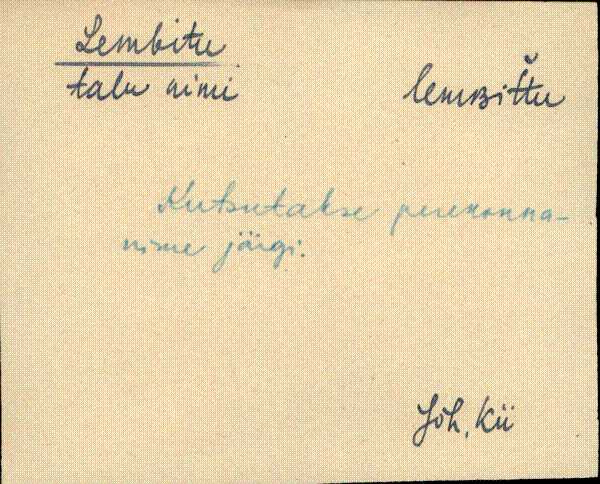 Lembitu
talu nimi
lemʙiť̆tu
Kutsutakse perekonna-
nime järgi.
Jõh, Kii